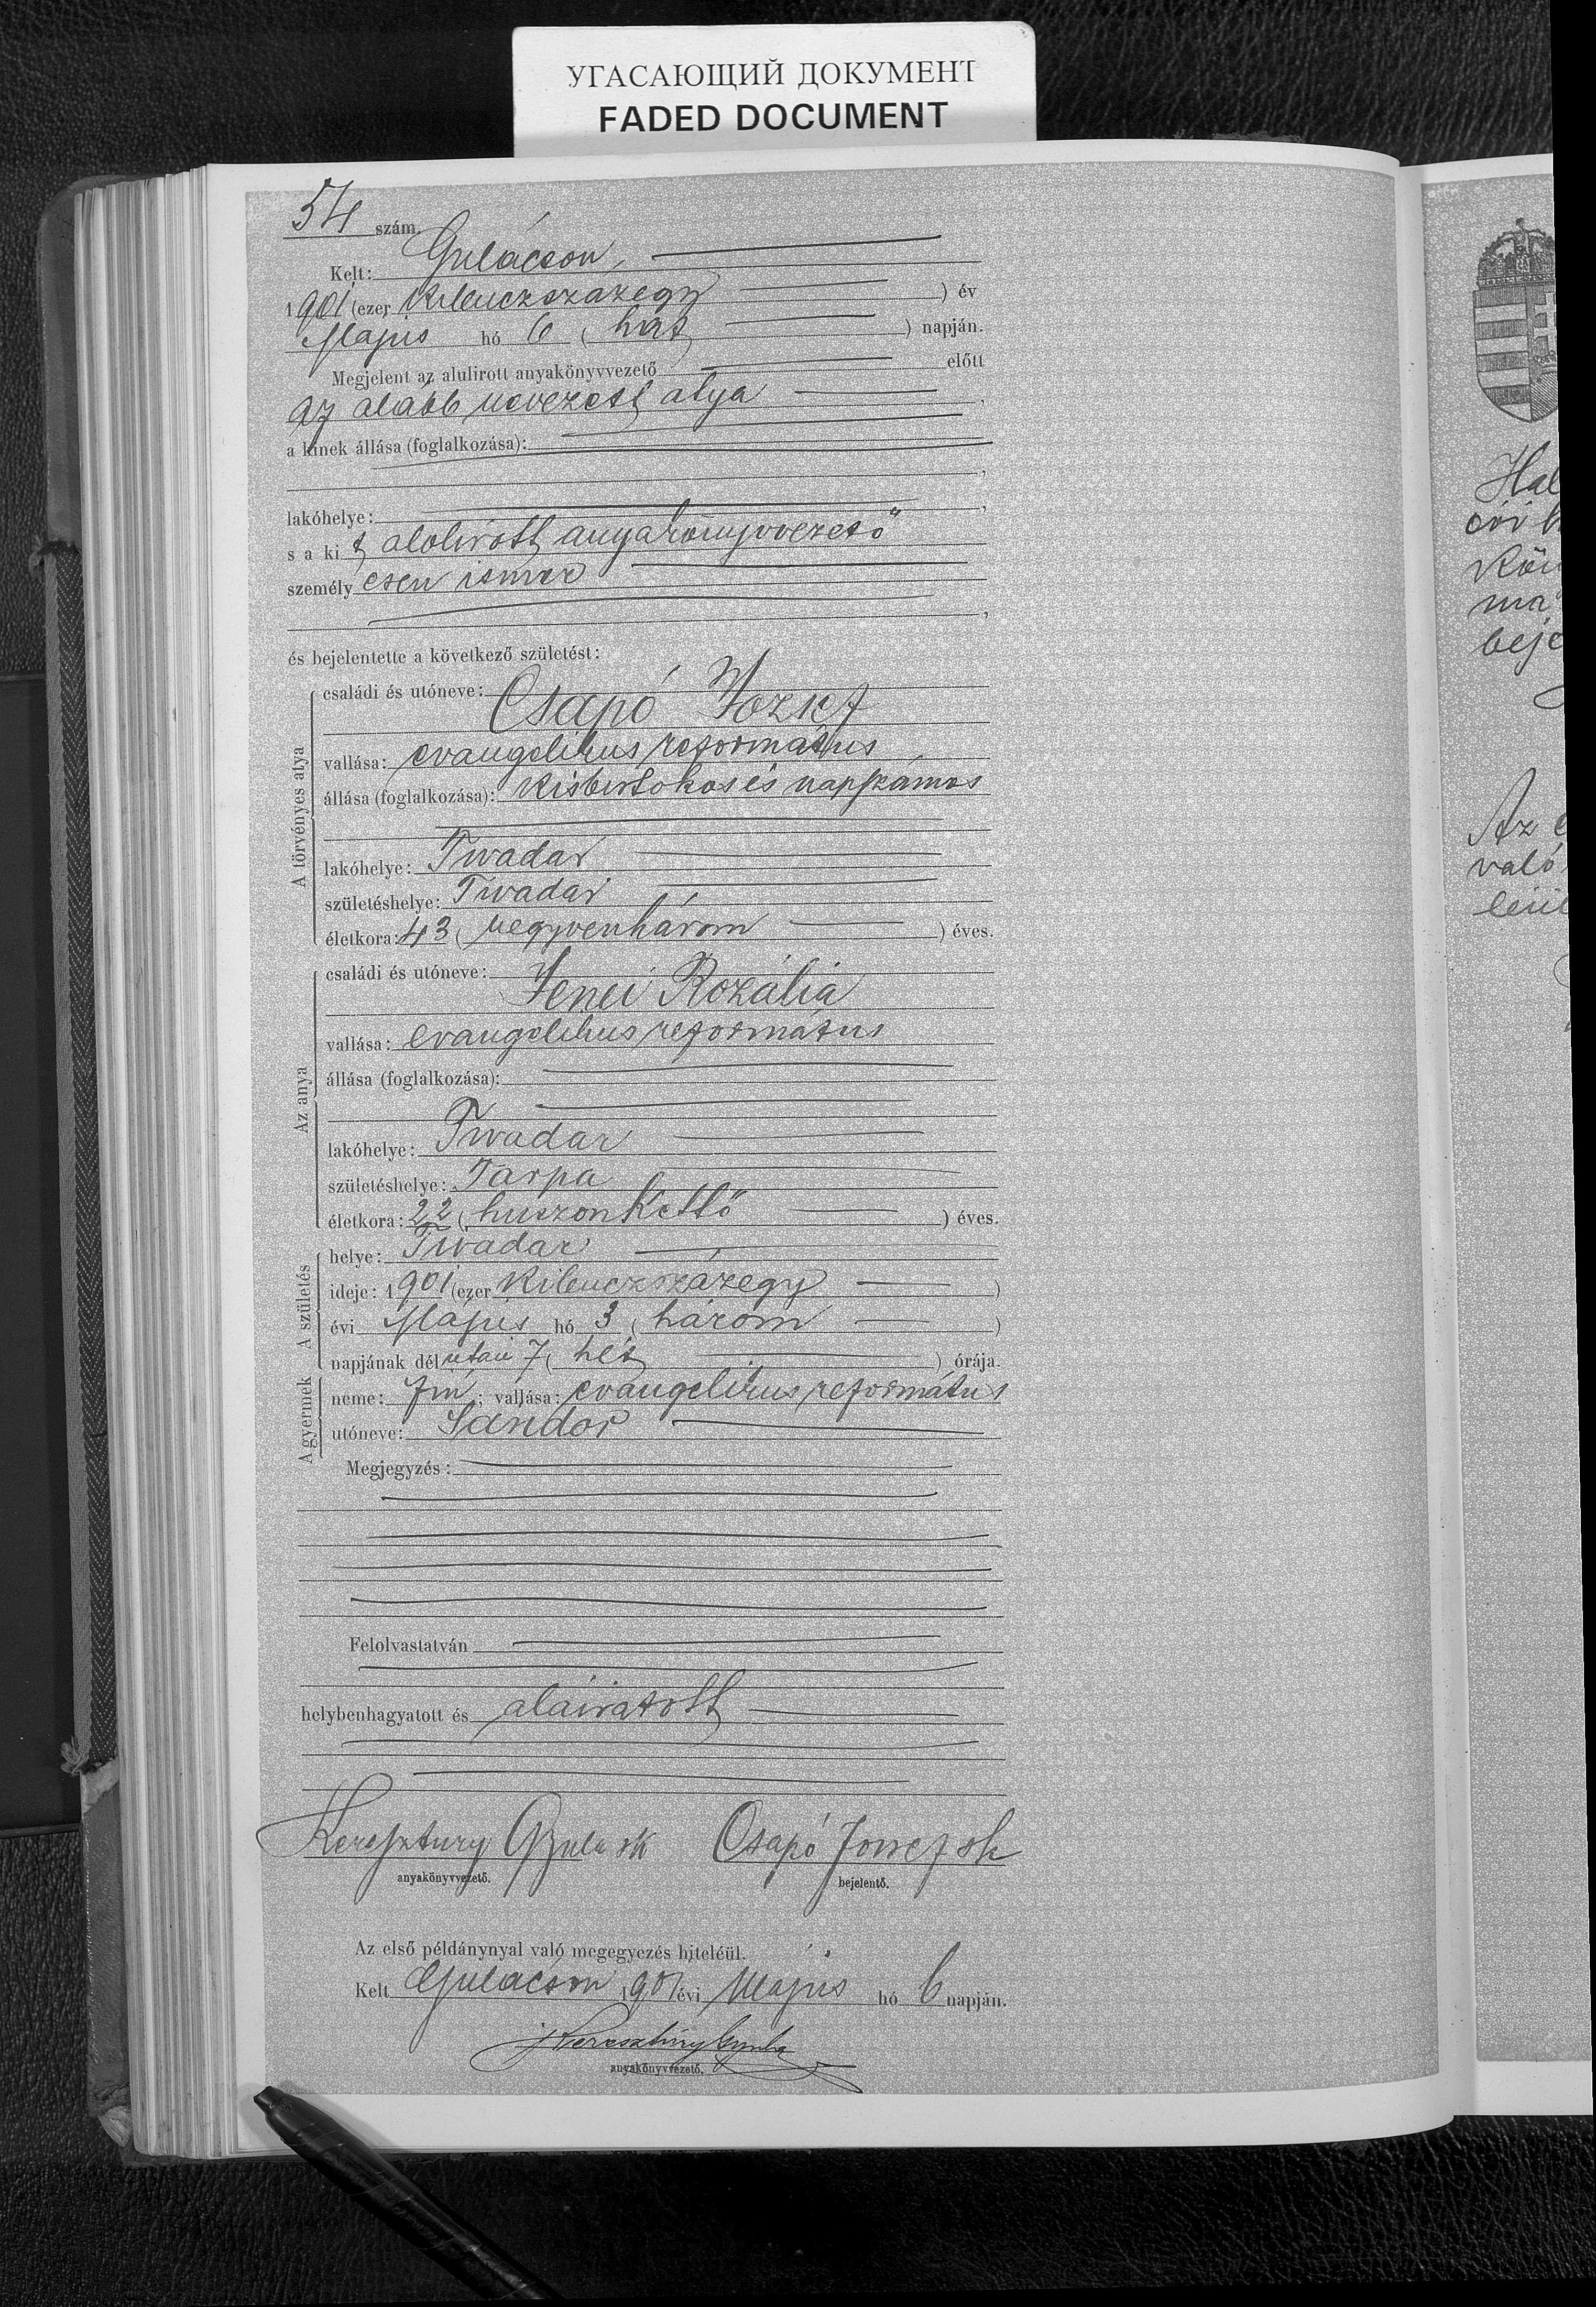 УГАСАЮЩИЙ ДОКУМЕНТ
FADED DOCUMENT
54 szám.
Kelt: Gulácson,
1901 (ezer kilenczszázegy ) év
Majus hó 6 ( hat ) napján.
Megjelent az alulirott anyakönyvvezető előtt
az alább nevezett atya ,
a kinek állása (foglalkozása):
,
lakóhelye: ,
s a ki t alolirott anyakönyvvezető
személy esen ismer
,
és bejelentette a következő születést:
A törvényes atya
családi és utóneve:
Csapó József
vallása: evangelikus református
állása (foglalkozása): kisbirtokos és napszámos
lakóhelye: Tivadar
születéshelye: Tivadar
életkora: 43 ( negyvenhárom ) éves.
Az anya
családi és utóneve:
Jenei Rozália
vallása: evangelikus református
állása (foglalkozása):
lakóhelye: Tivadar
születéshelye: Tarpa
életkora: 22 ( huszonkettő ) éves.
A születés
helye: Tivadar
ideje: 1901 (ezer kilenczszázegy )
évi Május hó 3 ( három )
napjának dél után 7 ( hét ) órája.
A gyermek
neme: fiú ; vallása: evangelikus református
utóneve: Sándor
Megjegyzés:
Felolvastatván
helybenhagyatott és aláiratott
Keresztury Gyula sk Csapó József sk
anyakönyvvezető. bejelentő.
Az első példánynyal való megegyezés hiteléül.
Kelt Gulácson 1901 évi Majus hó 6 napján.
Keresztúry Gyula
anyakönyvvezető.
Hal
Kön
ma
beje
Az
való